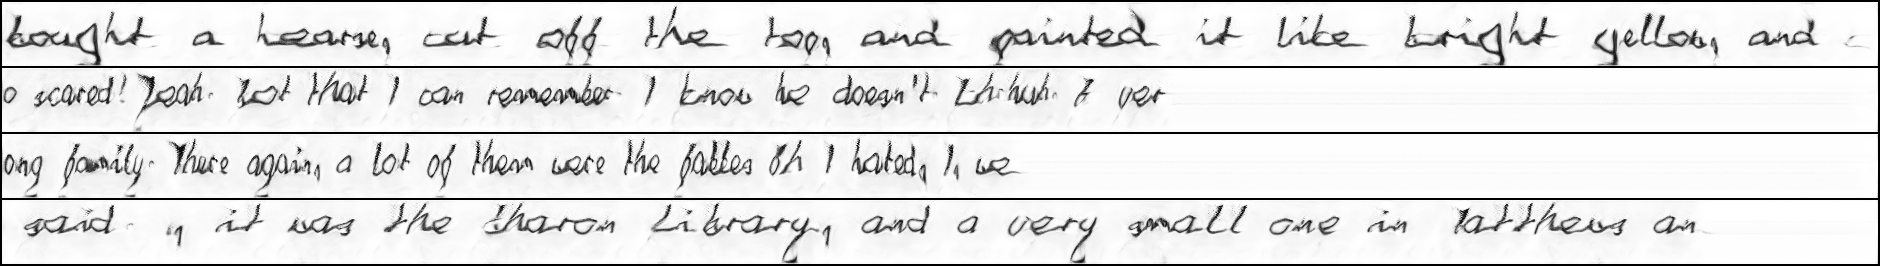 bought a hearse, cut off the top, and painted it like bright yellow, and
o scared! Yeah. Not that I can remember. I know he doesn't. Uh-huh. I ver
ong family. There again, a lot of them were the fables Oh I hated, I, we
said. , it was the Sharon Library, and a very small one in Matthews an